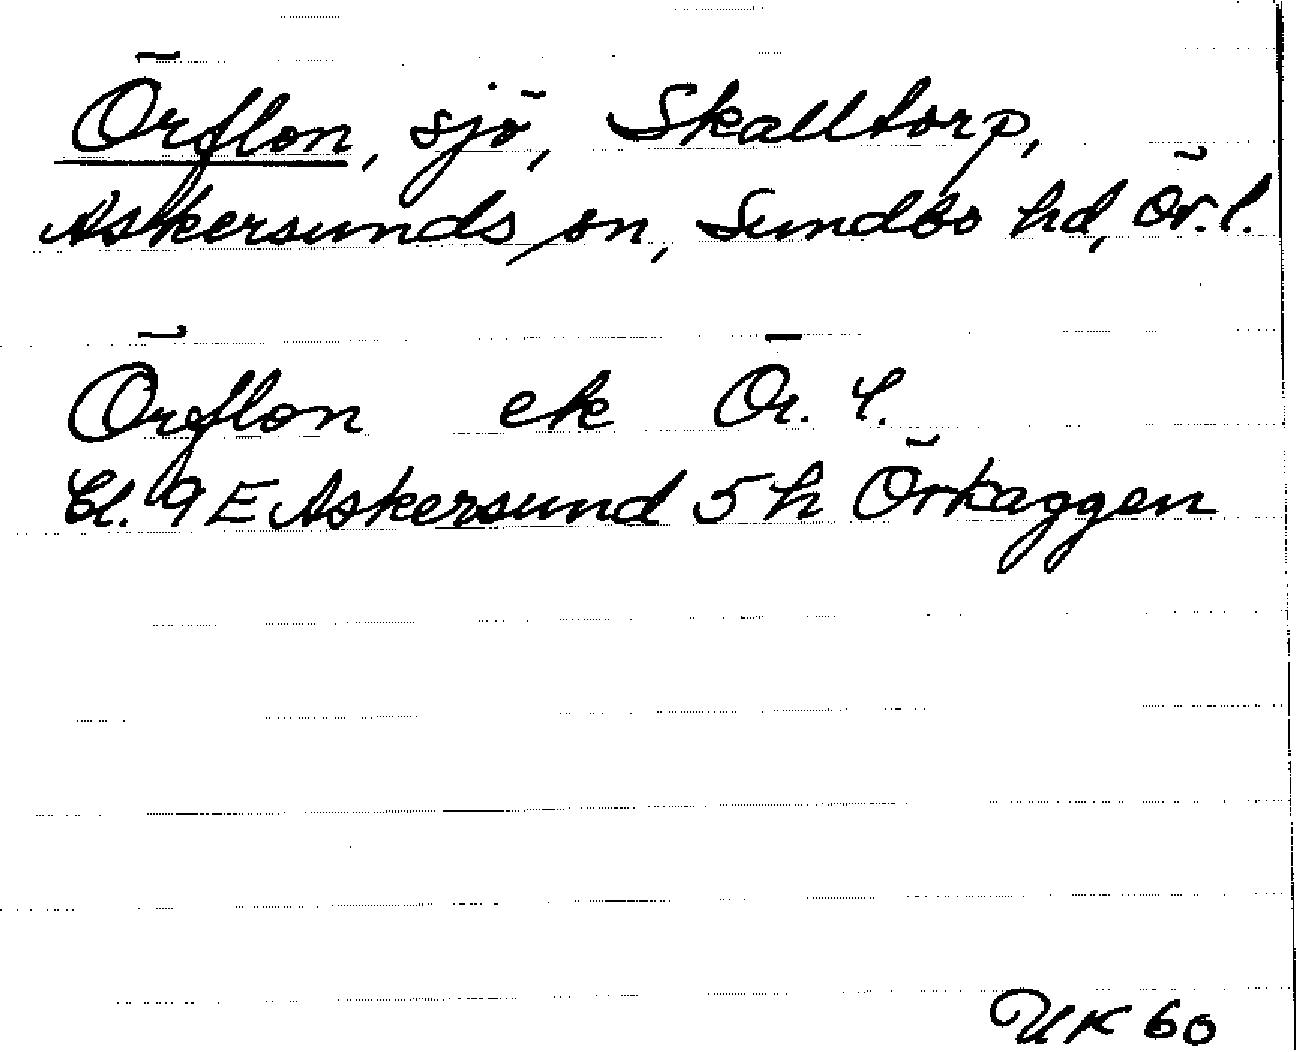 Örflon, sjö, Skalltorp,
Askersunds sn, Sundbo hd, Ör. l.
Örflon ek Ör. l.
Bl. 9 E Askersund 5 h Örkaggen
UK 60